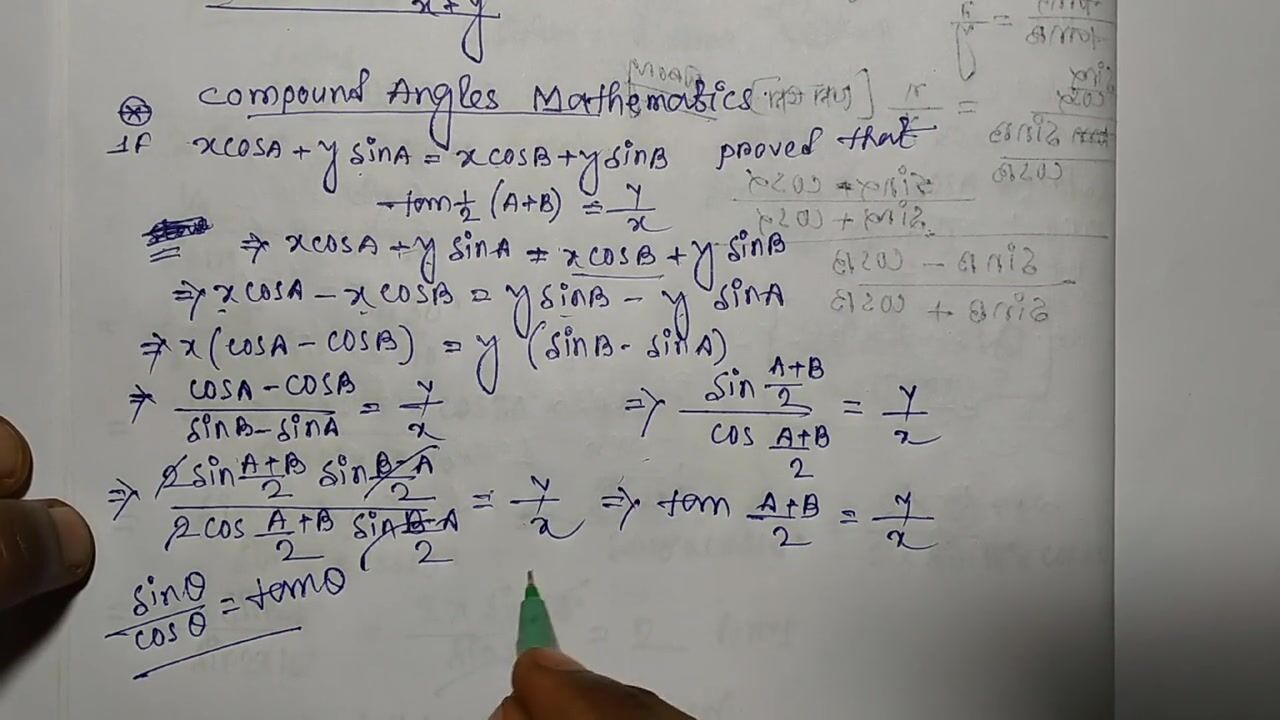 x+y
Compound Angles Mathematics
If xcosA + y sinA = xcosB + y sinB proved that
tan 1/2 (A+B) = y/x
⇒ xcosA + y sinA = xcosB + y sinB
⇒ xcosA - xcosB = y sinB - y sinA
⇒ x(cosA - cosB) = y (sinB - sinA)
⇒ (cosA - cosB)/(sinB - sinA) = y/x
⇒ (2 sin (A+B)/2 sin (B-A)/2)/(2 cos (A+B)/2 sin (B-A)/2) = y/x
sinθ/cosθ = tanθ
⇒ (sin (A+B)/2)/(cos (A+B)/2) = y/x
⇒ tan (A+B)/2 = y/x